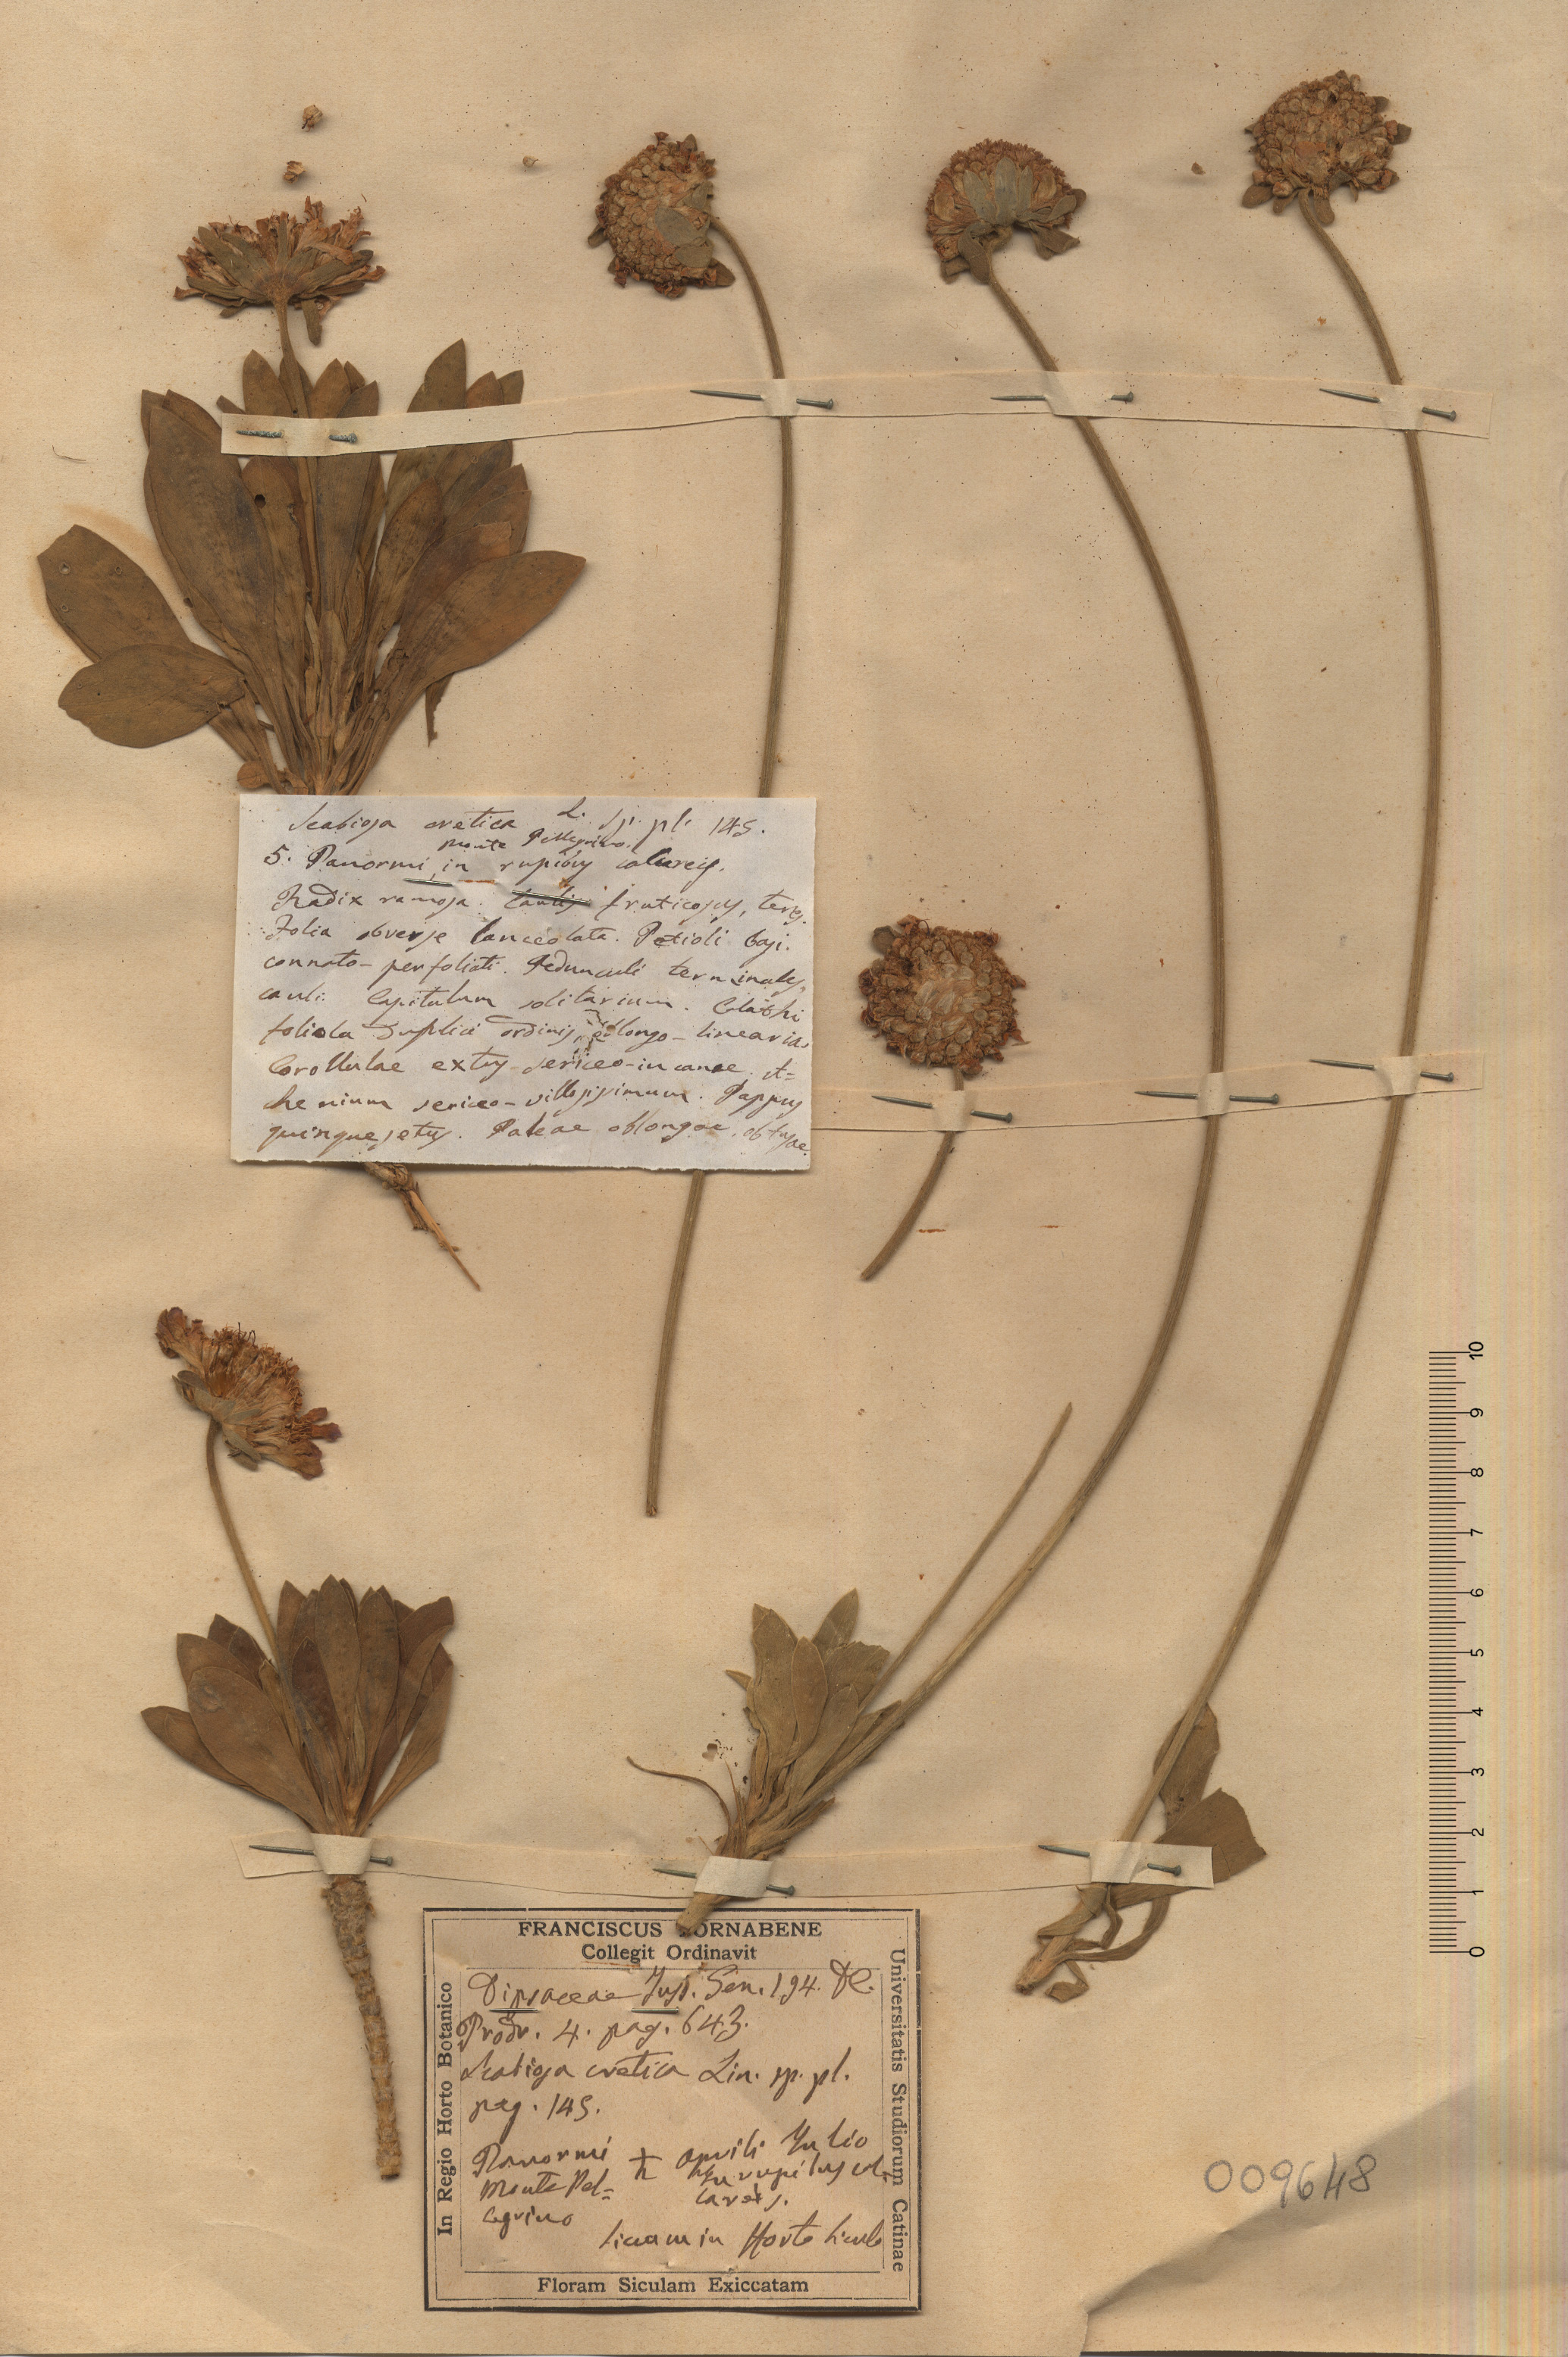 Scabiosa cretica L. sp. pl. 145.
Monte Pellegrino.
5. Panormi, in rupibus calcareis.
Radix ramosa. Caulis fruticosus, teres.
Folia obverse lanceolata. Petioli basi
connato-perfoliati. Pedunculi terminales,
cauli. Capitulum solitarium. Clathi
foliola duplici ordinis, oblongo-linearia.
Corollulae extus sericeo-incanae. A=
chenium sericeo-villosissimum. Pappus
quinquesetus. Paleae oblongae, obtusae.
FRANCISCUS TORNABENE
Collegit Ordinavit
In Regio Horto Botanico
Universitatis Studiorum Catinae
Dipsaceae Juss. Gen. 194. DC.
Prodr. 4. pag. 643.
Scabiosa cretica Lin. sp. pl.
pag. 145.
Panormi ♄ Aprili Julio
Monte Pel= In rupibus cal=
legrino careis.
Siccam in Horto Siculo
Floram Siculam Exiccatam
10
9
8
7
6
5
4
3
2
1
0
009648